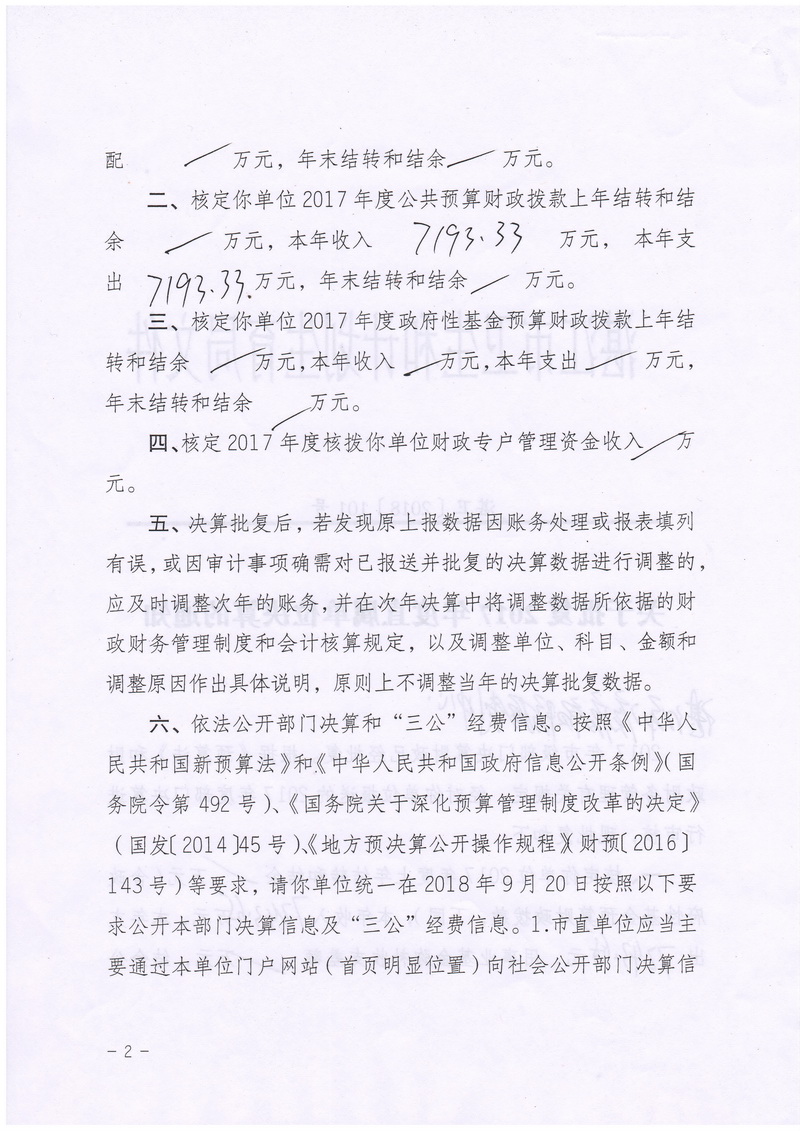 配 ／ 万元，年末结转和结余 ／ 万元。
二、核定你单位2017年度公共预算财政拨款上年结转和结
余 ／ 万元，本年收入 7193.33 万元， 本年支
出 7193.33.万元，年末结转和结余 ／ 万元。
三、核定你单位2017年度政府性基金预算财政拨款上年结
转和结余 ／ 万元,本年收入 ／ 万元,本年支出 ／ 万元，
年末结转和结余 ／ 万元。
四、核定2017年度核拨你单位财政专户管理资金收入 ／ 万
元。
五、决算批复后，若发现原上报数据因账务处理或报表填列
有误，或因审计事项确需对已报送并批复的决算数据进行调整的，
应及时调整次年的账务，并在次年决算中将调整数据所依据的财
政财务管理制度和会计核算规定，以及调整单位、科目、金额和
调整原因作出具体说明，原则上不调整当年的决算批复数据。
六、依法公开部门决算和“三公”经费信息。按照《中华人
民共和国新预算法》和《中华人民共和国政府信息公开条例》（国
务院令第492号）、《国务院关于深化预算管理制度改革的决定》
（国发〔2014〕45号）、《地方预决算公开操作规程》（财预〔2016〕
143号）等要求，请你单位统一在2018年9月20日按照以下要
求公开本部门决算信息及“三公”经费信息。1.市直单位应当主
要通过本单位门户网站（首页明显位置）向社会公开部门决算信
－2－